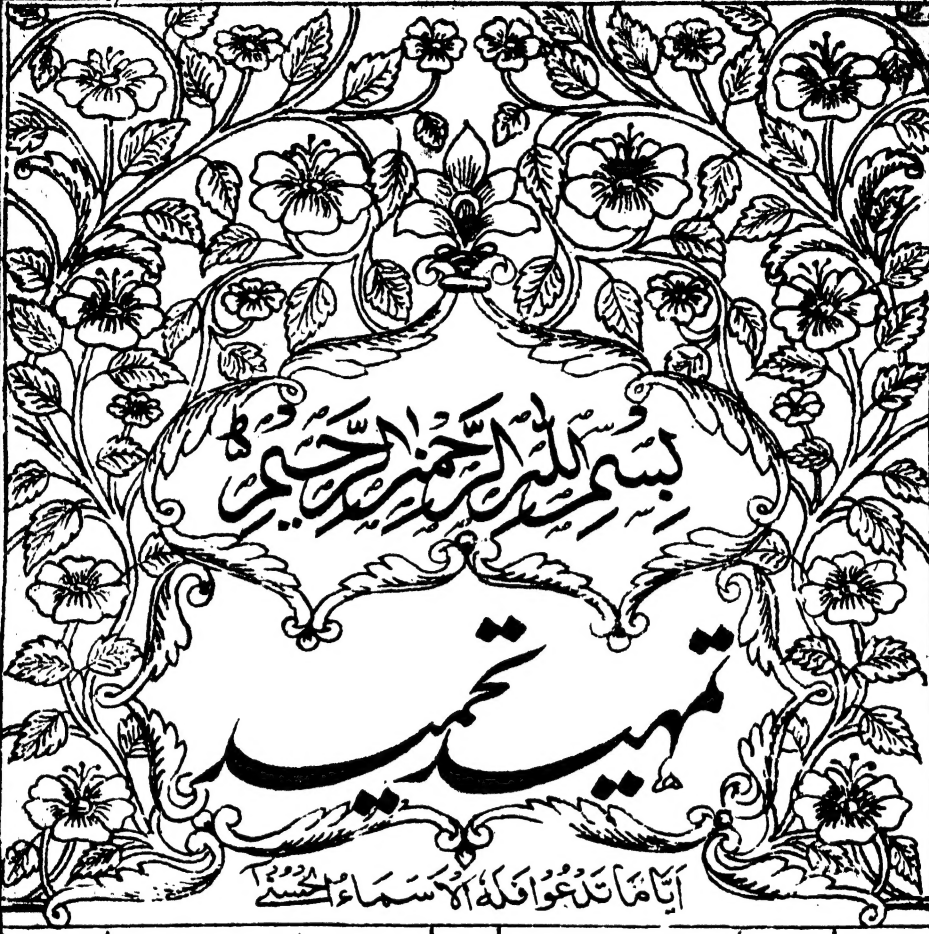 بِسْمِ اللهِ الرَّحْمٰنِ الرَّحِيْمِ
تمہید تحمید
اَيًّا مَّا تَدْعُوْا فَلَهُ الْاَسْمَاءُ الْحُسْنٰى